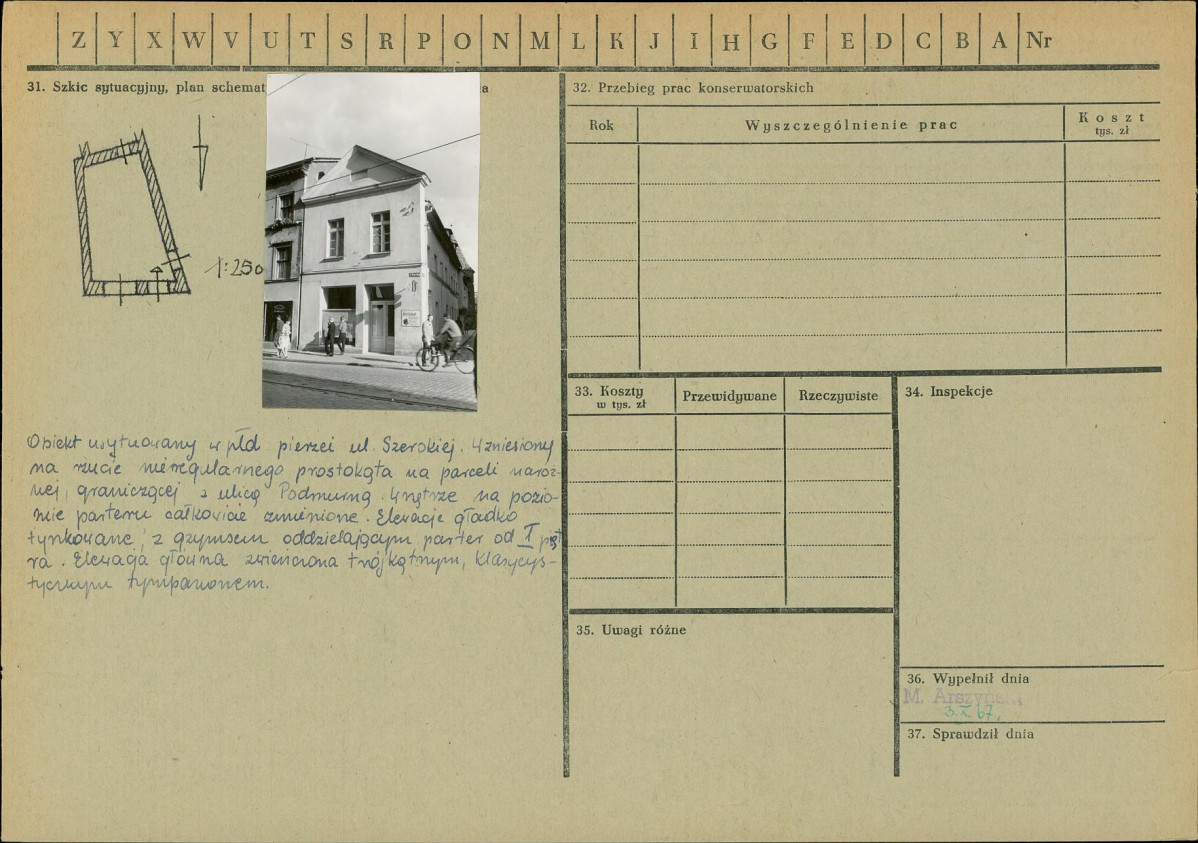 Z Y X W V U T S R P O N M L K J I H G F E D C B A Nr
31. Szkic sytuacyjny, plan schemat
1:250
Obiekt usytuowany w płd pierzei ul. Szerokiej. Wzniesiony
na rzucie nieregularnego prostokąta na parceli naroż-
nej, graniczącej z ulicą Podmurną. Wnętrze na pozio-
mie parteru całkowicie zmienione. Elewacje gładko
tynkowane, z gzymsem oddzielającym parter od I pięt
ra. Elewacja główna zwieńczona trójkątnym, klasycys-
tycznym tympanonem.
32. Przebieg prac konserwatorskich
Rok Wyszczególnienie prac Koszt
tys. zł
33. Koszty
w tys. zł
Przewidywane Rzeczywiste
34. Inspekcje
35. Uwagi różne
36. Wypełnił dnia
M. Arszyński
3.X.67.
37. Sprawdził dnia